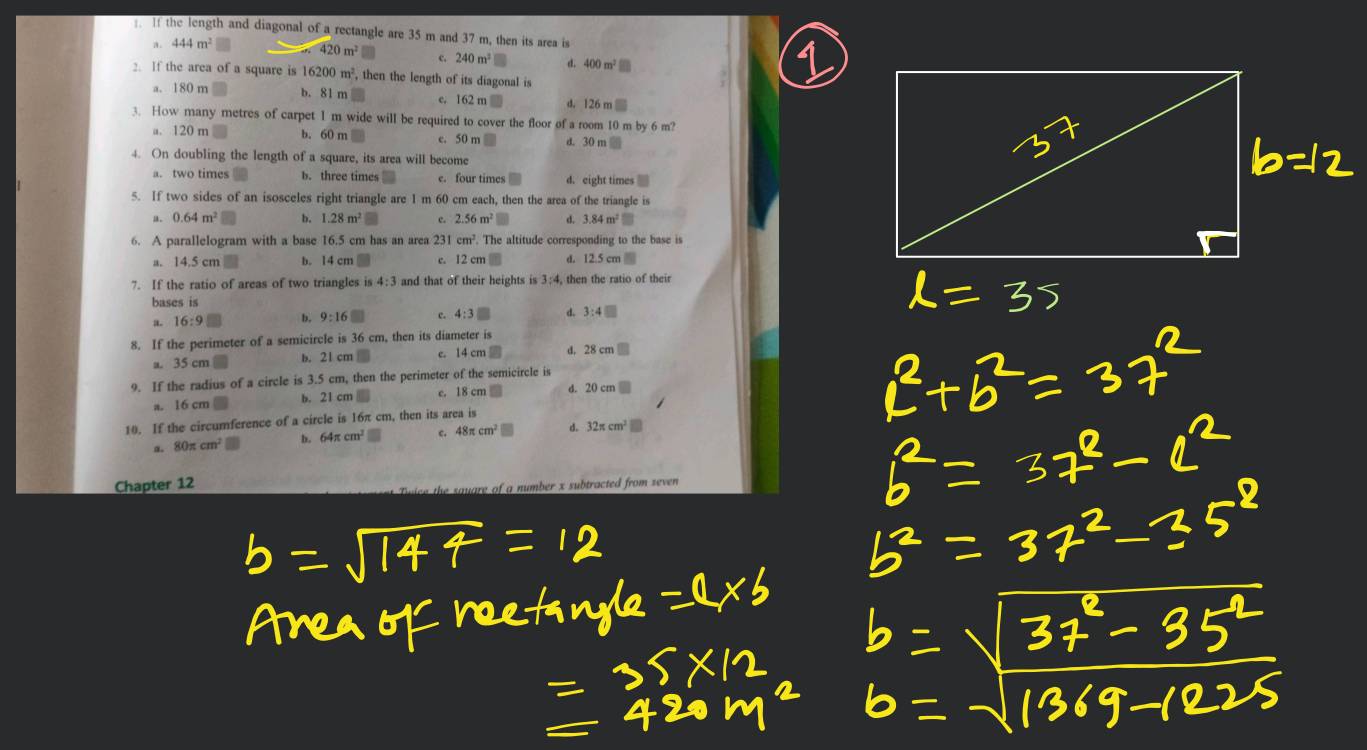 1. If the length and diagonal of a rectangle are 35 m and 37 m, then its area is
a. 444 m² 420 m² c. 240 m² d. 400 m²
2. If the area of a square is 16200 m², then the length of its diagonal is
a. 180 m b. 81 m c. 162 m d. 126 m
3. How many metres of carpet 1 m wide will be required to cover the floor of a room 10 m by 6 m?
a. 120 m b. 60 m c. 50 m d. 30 m
4. On doubling the length of a square, its area will become
a. two times b. three times c. four times d. eight times
5. If two sides of an isosceles right triangle are 1 m 60 cm each, then the area of the triangle is
a. 0.64 m² b. 1.28 m² c. 2.56 m² d. 3.84 m²
6. A parallelogram with a base 16.5 cm has an area 231 cm². The altitude corresponding to the base is
a. 14.5 cm b. 14 cm c. 12 cm d. 12.5 cm
7. If the ratio of areas of two triangles is 4:3 and that of their heights is 3:4, then the ratio of their
bases is
a. 16:9 b. 9:16 c. 4:3 d. 3:4
8. If the perimeter of a semicircle is 36 cm, then its diameter is
a. 35 cm b. 21 cm c. 14 cm d. 28 cm
9. If the radius of a circle is 3.5 cm, then the perimeter of the semicircle is
a. 16 cm b. 21 cm c. 18 cm d. 20 cm
10. If the circumference of a circle is 16π cm, then its area is
a. 80π cm² b. 64π cm² c. 48π cm² d. 32π cm²
Chapter 12
Twice the square of a number x subtracted from seven
1
37
b=12
l = 35
l²+b² = 37²
b² = 37² - l²
b² = 37² - 35²
b = √37² - 35²
b = √1369-1225
b = √144 = 12
Area of rectangle = l×b
= 35×12
= 420 m²